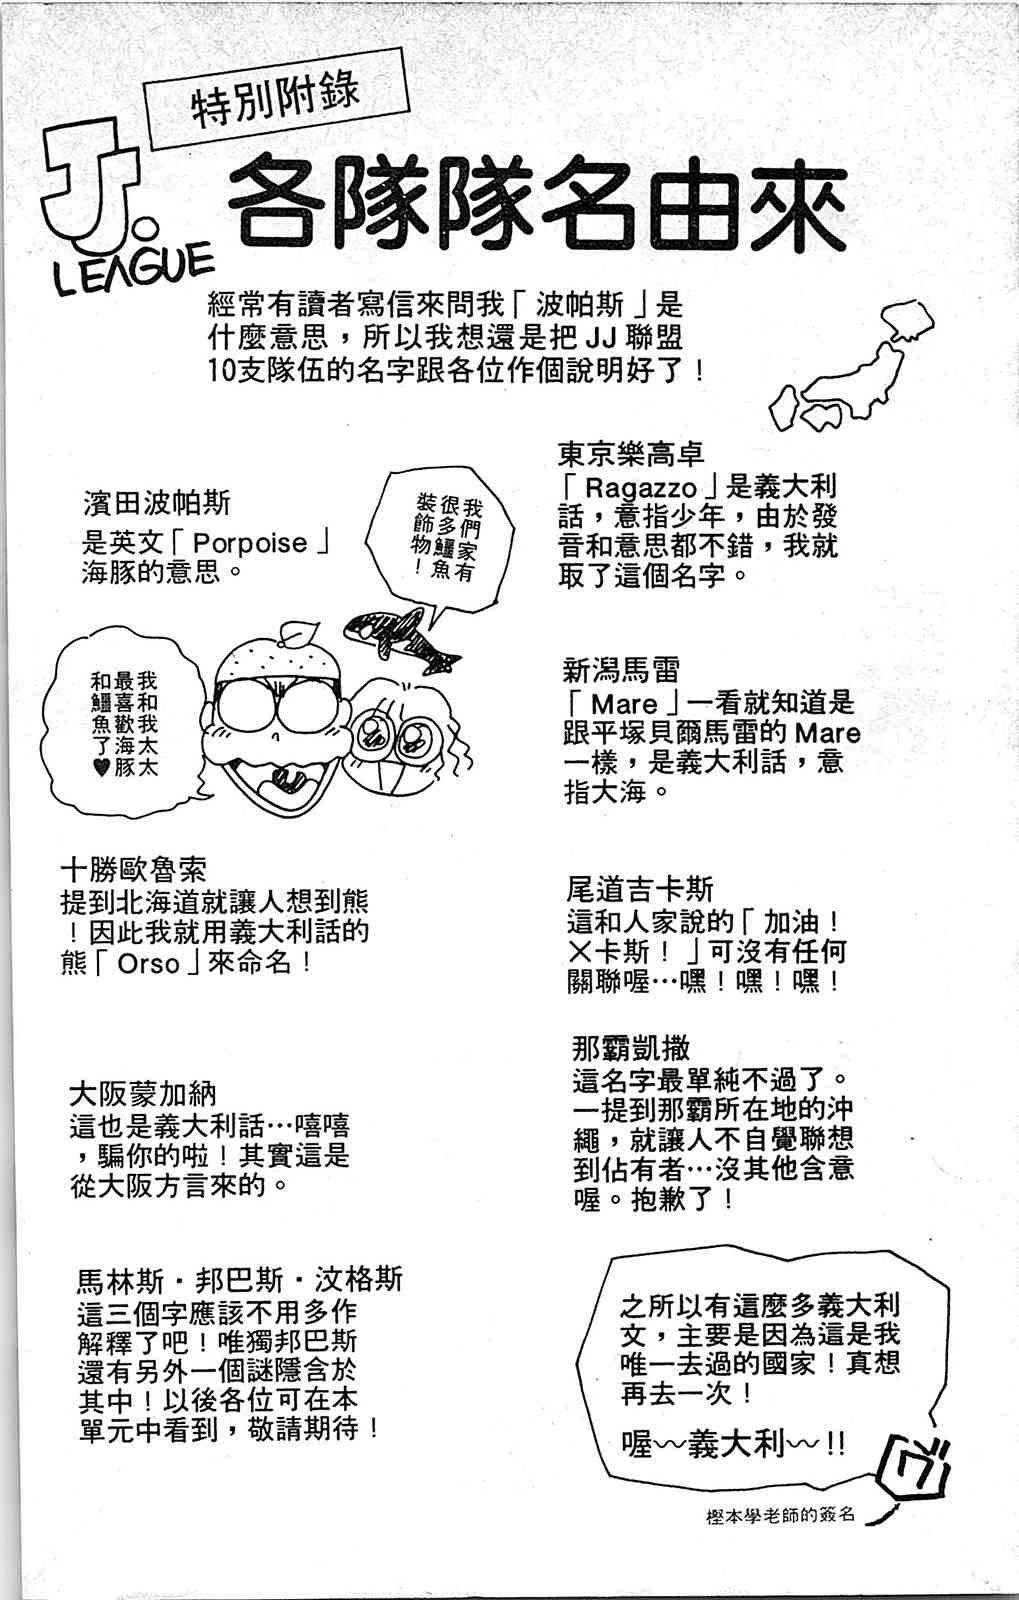 特別附錄
JJ.
LEAGUE
各隊隊名由來
經常有讀者寫信來問我「波帕斯」是
什麼意思，所以我想還是把 JJ 聯盟
10支隊伍的名字跟各位作個說明好了！
濱田波帕斯
是英文「Porpoise」
海豚的意思。
我們家有
很多鱷魚
裝飾物！
我和我太太
最喜歡海豚
和鱷魚了♥
十勝歐魯索
提到北海道就讓人想到熊
！因此我就用義大利話的
熊「Orso」來命名！
大阪蒙加納
這也是義大利話…嘻嘻
，騙你的啦！其實這是
從大阪方言來的。
馬林斯・邦巴斯・汶格斯
這三個字應該不用多作
解釋了吧！唯獨邦巴斯
還有另外一個謎隱含於
其中！以後各位可在本
單元中看到，敬請期待！
東京樂高卓
「Ragazzo」是義大利
話，意指少年，由於發
音和意思都不錯，我就
取了這個名字。
新潟馬雷
「Mare」一看就知道是
跟平塚貝爾馬雷的 Mare
一樣，是義大利話，意
指大海。
尾道吉卡斯
這和人家說的「加油！
×卡斯！」可沒有任何
關聯喔…嘿！嘿！嘿！
那霸凱撒
這名字最單純不過了。
一提到那霸所在地的沖
繩，就讓人不自覺聯想
到佔有者…沒其他含意
喔。抱歉了！
之所以有這麼多義大利
文，主要是因為這是我
唯一去過的國家！真想
再去一次！
喔～義大利～!!
樫本學老師的簽名